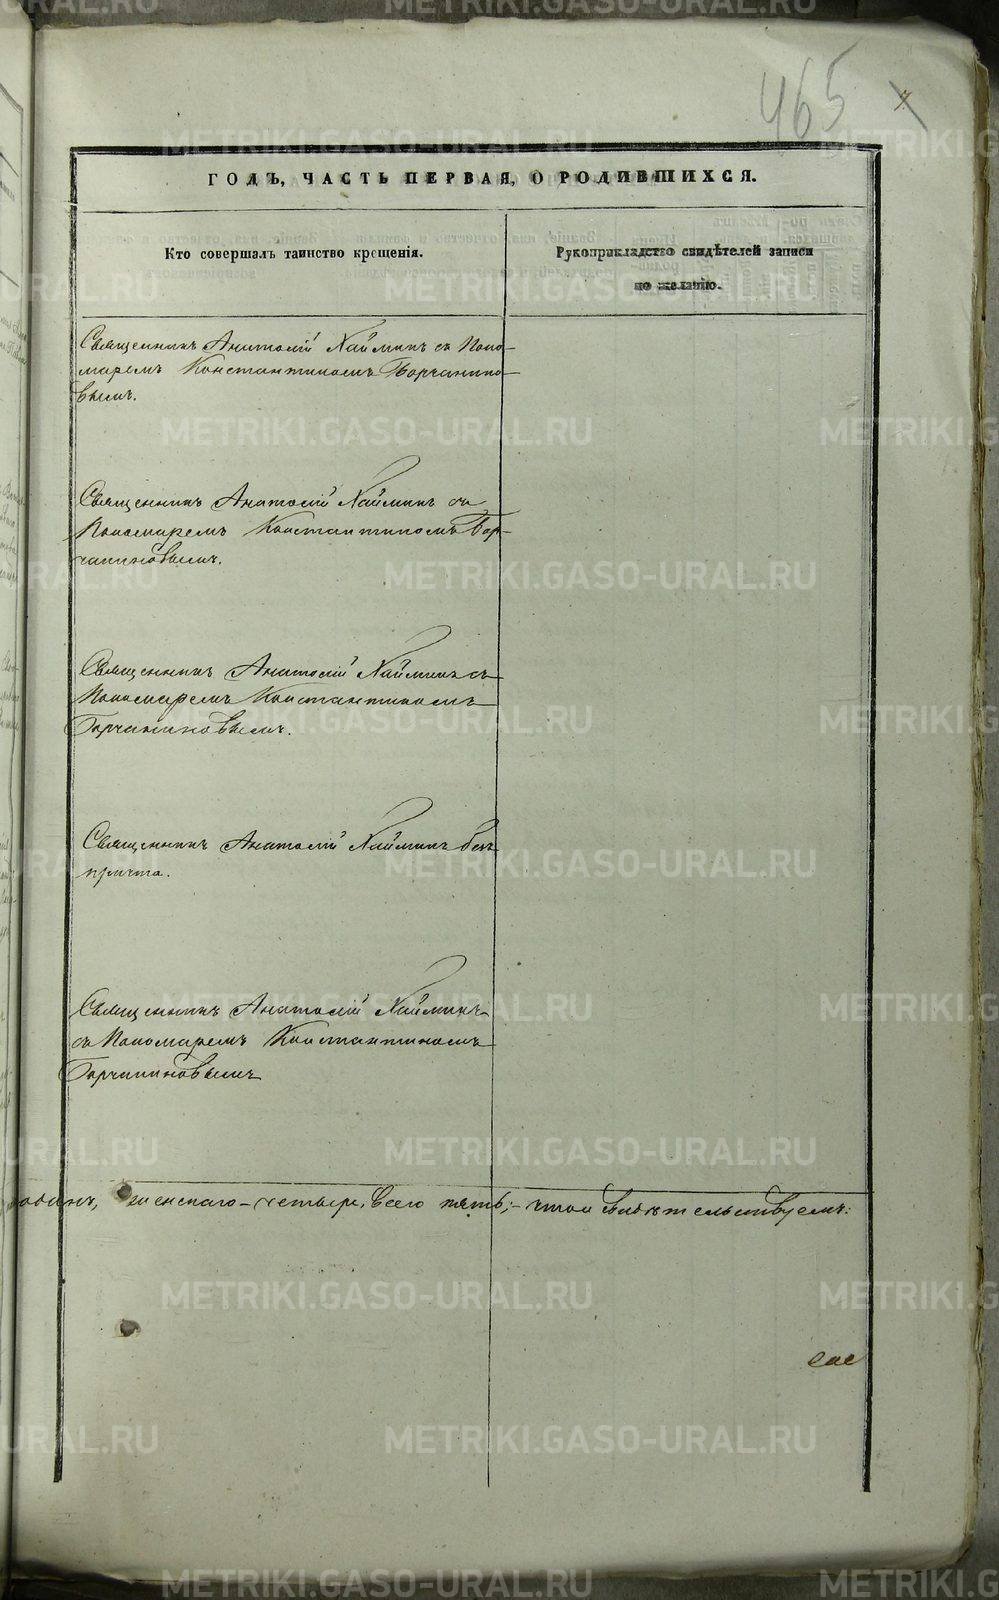 465
7
ГОДЪ, ЧАСТЬ ПЕРВАЯ, О РОДИВШИХСЯ.
Кто совершалъ таинство крещенія.
Рукоприкладство свидѣтелей записи
по желанію.
Священникъ Анатолій Найминъ съ Поно-
маремъ Константиномъ Горчанино-
вымъ.
Священникъ Анатолій Найминъ съ
Пономаремъ Константиномъ Гор-
чаниновымъ.
Священникъ Анатолій Найминъ съ
Пономаремъ Константиномъ
Горчаниновымъ.
Священникъ Анатолій Найминъ безъ
причта.
Священникъ Анатолій Найминъ
съ Пономаремъ Константиномъ
Горчаниновымъ
женскаго – четыре, всего пять; – въ свидѣтельствуемъ:
METRIKI.GASO-URAL.RU